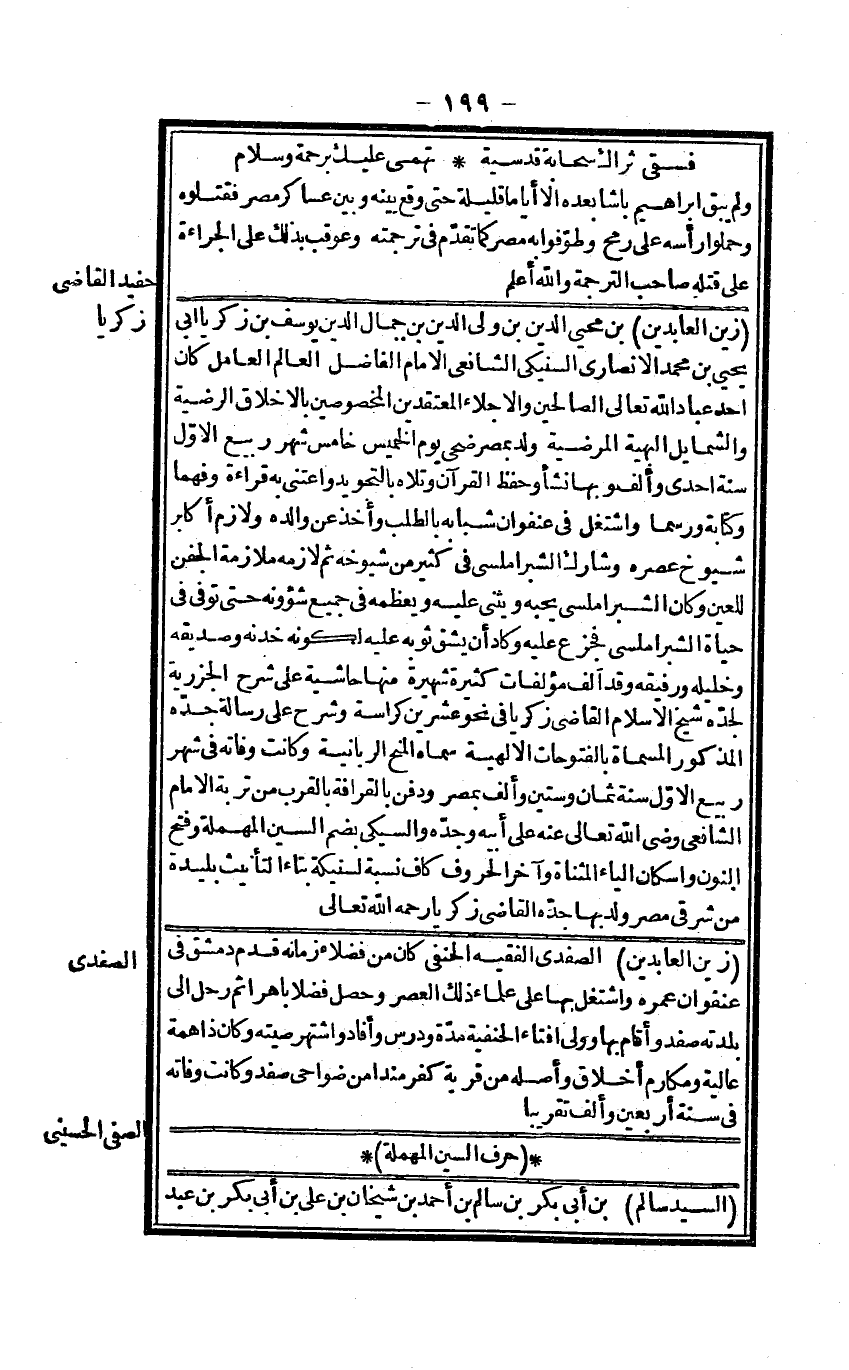 - ١٩٩ -
فسقى ثراك سحابة قدسية * تهمى عليك برحمة وسلام
ولم يبق ابراهيم باشا بعده الا أياما قليلة حتى وقع بينه وبين عساكر مصر فقتلوه
وحملوا رأسه على رمح وطوّفوا به مصر كما تقدّم فى ترجمته وعوقب بذلك على الجراءة
على قتله صاحب الترجمة والله أعلم
حفيد القاضى
زكريا
(زين العابدين) بن محيى الدين بن ولى الدين بن جمال الدين يوسف بن زكريا أبى
يحيى بن محمد الانصارى السنيكى الشافعى الامام الفاضل العالم العامل كان
احد عباد الله تعالى الصالحين والاجلاء المعتقدين المخصوصين بالاخلاق الرضية
والشمايل البهية المرضية ولد بمصر ضحى يوم الخميس خامس شهر ربيع الاوّل
سنة احدى وألف وبها نشأ وحفظ القرآن وتلاه بالتجويد واعتنى به قراءة وفهما
وكتابة ورسما واشتغل فى عنفوان شبابه بالطلب وأخذ عن والده ولازم أكابر
شيوخ عصره وشارك الشبراملسى فى كثير من شيوخه ثم لازمه ملازمة الجفن
للعين وكان الشبراملسى يحبه ويثنى عليه ويعظمه فى جميع شؤونه حتى توفى فى
حياة الشبراملسى فجزع عليه وكاد أن يشق ثوبه عليه لكونه خدنه وصديقه
وخليله ورفيقه وقد آلف مؤلفات كثيرة شهيرة منها حاشية على شرح الجزرية
لجدّه شيخ الاسلام القاضى زكريا فى نحو عشرين كراسة وشرح على رسالة جدّه
المذكور المسماة بالفتوحات الالهية سماه المنح الربانية وكانت وفاته فى شهر
ربيع الاوّل سنة ثمان وستين وألف بمصر ودفن بالقرافة بالقرب من تربة الامام
الشافعى رضى الله تعالى عنه على أبيه وجدّه والسيكى بضم السين المهملة وفتح
النون واسكان الياء المثناة وآخر الحروف كاف نسبة لسنيكة بتاء التأنيث بليدة
من شرقى مصر ولد بها جدّه القاضى زكريا رحمه الله تعالى
الصفدى
(زين العابدين) الصفدى الفقيه الحنفى كان من فضلاء زمانه قدم دمشق فى
عنفوان عمره واشتغل بها على علماء ذلك العصر وحصل فضلا باهرا ثم رحل الى
بلدته صفد وأقام بها وولى افتاء الحنفية مدّة ودرس وأفاد واشتهر صيته وكان ذا همة
عالية ومكارم أخلاق وأصله من قرية كفرمندا من ضواحى صفد وكانت وفاته
فى سنة أربعين وألف تقريبا
*(حرف السين المهملة)*
الصفى الحسينى
(السيد سالم) بن أبى بكر بن سالم بن أحمد بن شيخان بن على بن أبى بكر بن عبد